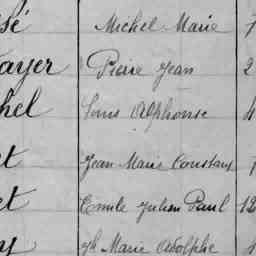 sé Michel Marie 7
ayer Pierre Jean 2
hel Louis Alphonse 4
t Jean Marie Constant 1
et Emile Julien Paul 12
y Jh Marie Adolphe